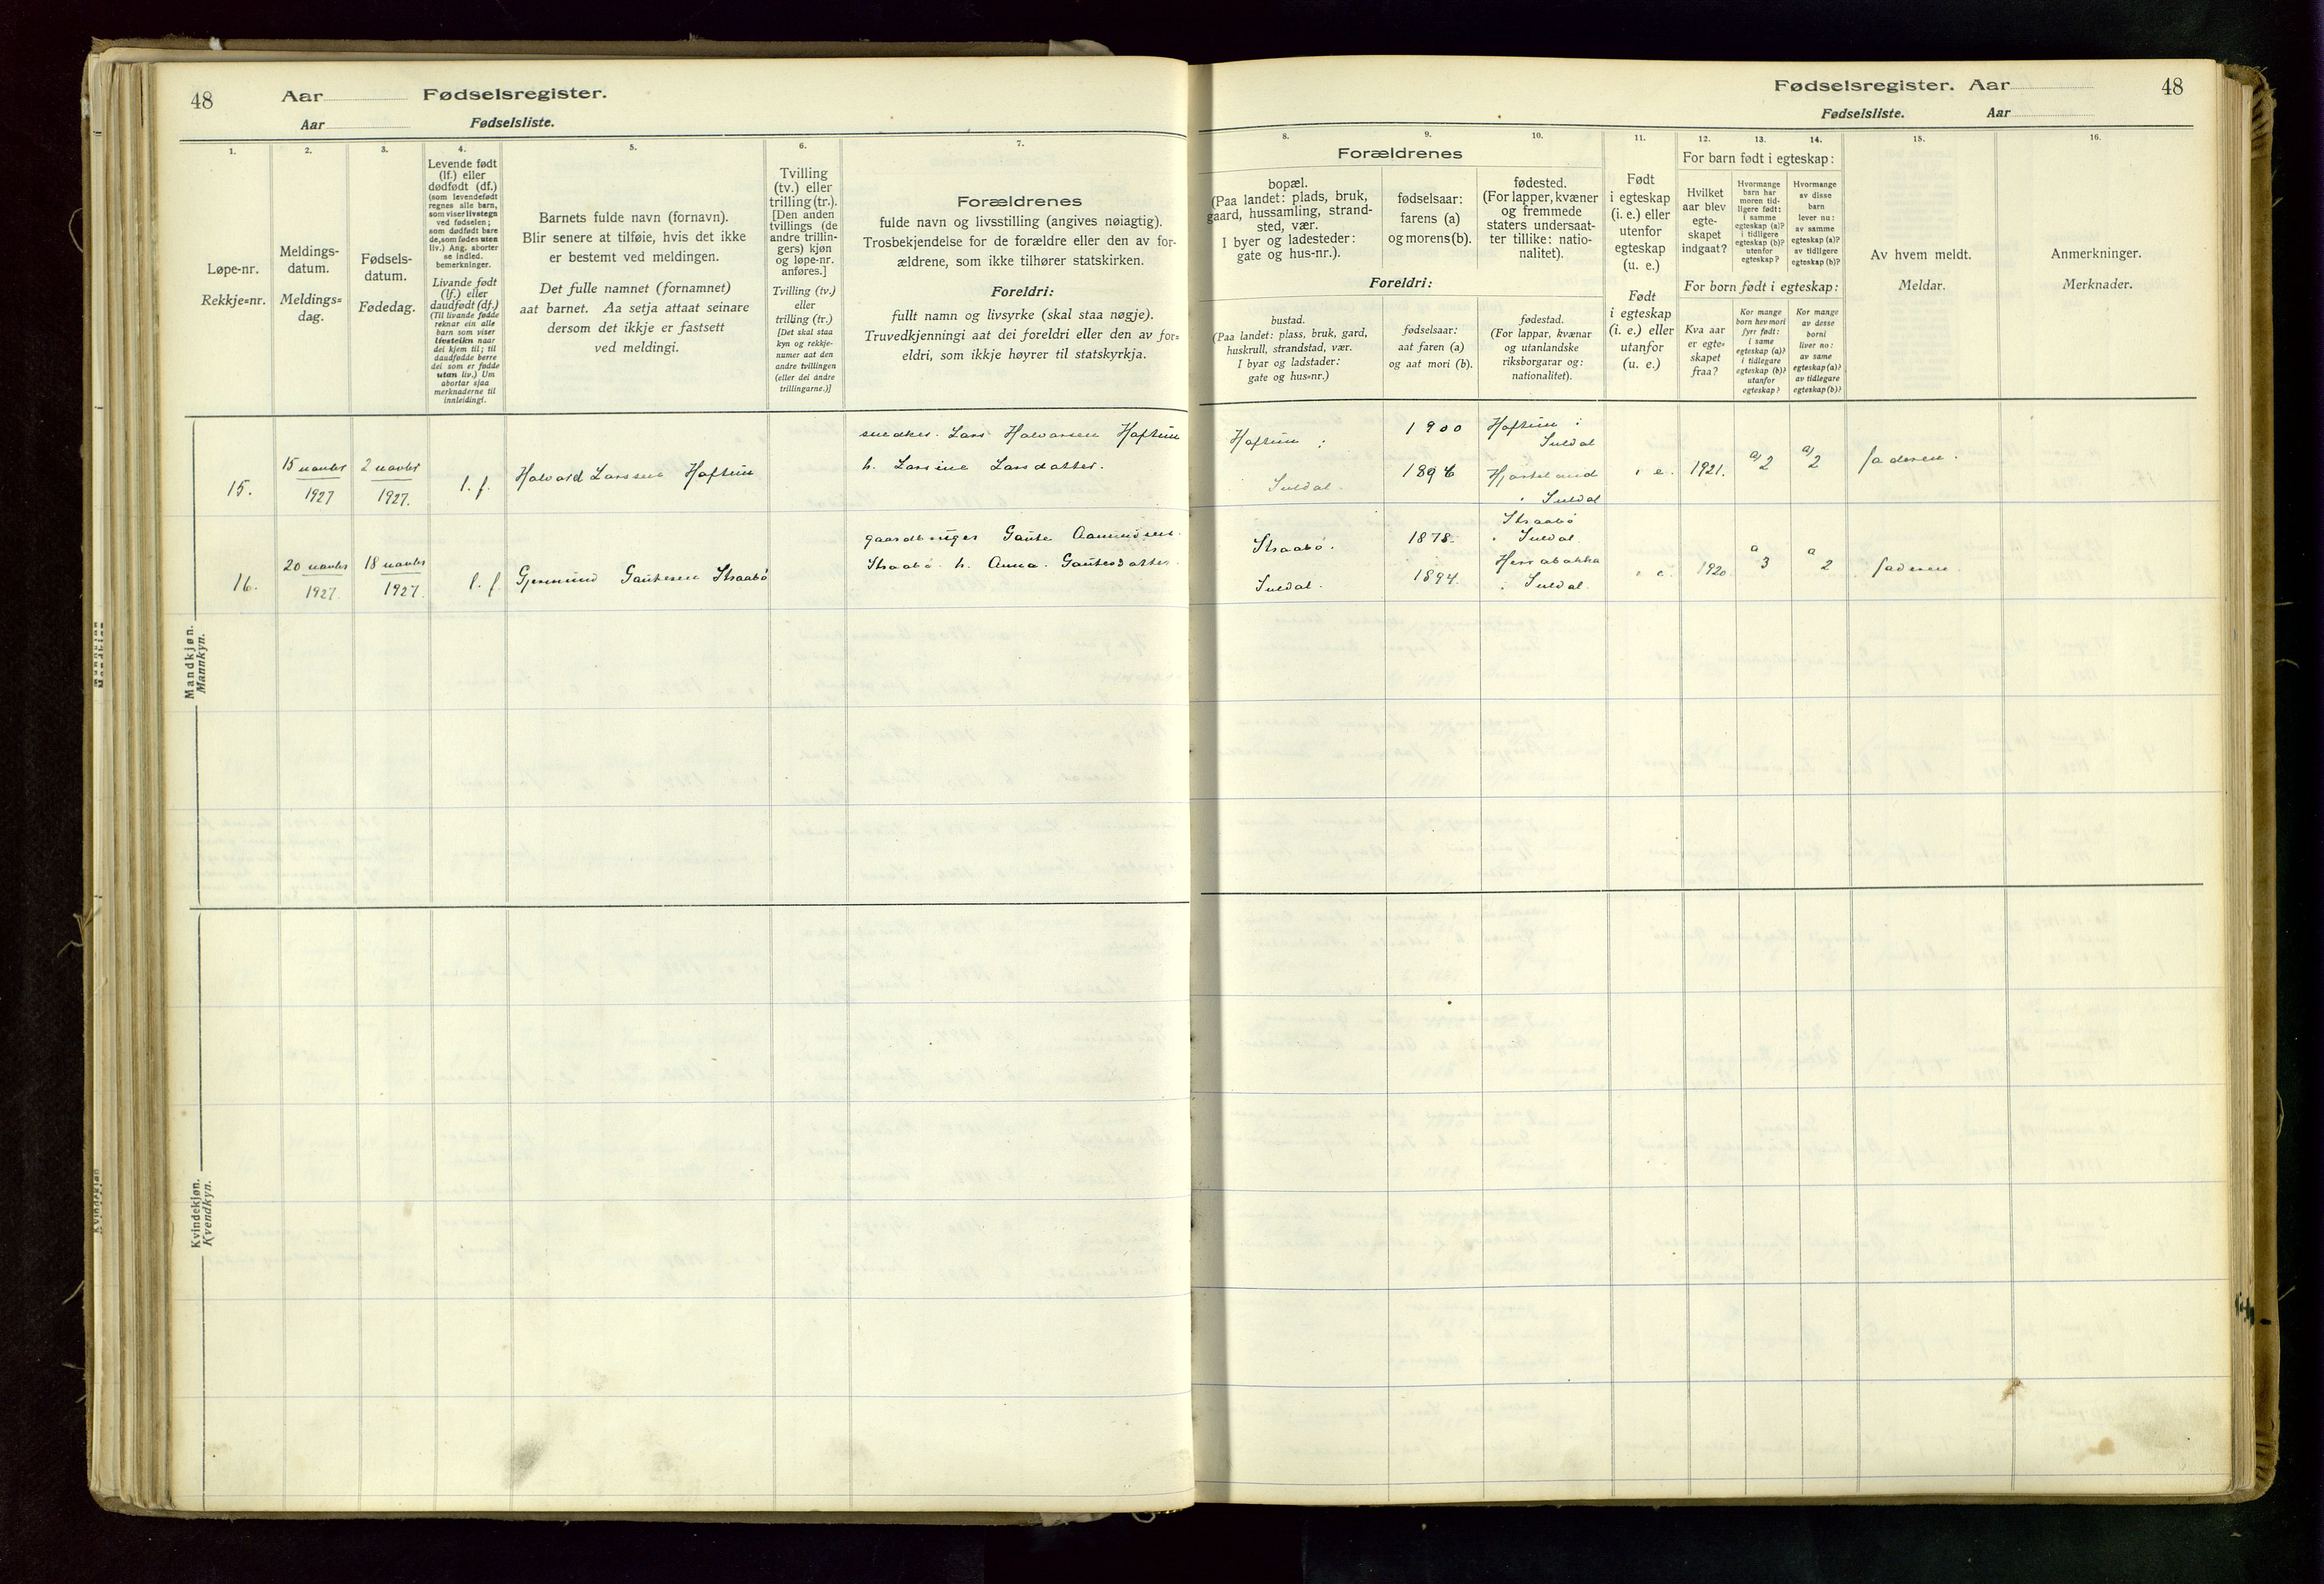 48
Aar
Fødselsregister.
Aar
Fødselsliste.
1.
Løpe-nr.
Rekkje=nr.
2.
Meldings-
datum.
Meldings=
dag.
3.
Fødsels-
datum.
Fødedag.
4.
Levende født
(lf.) eller
dødfødt (df.)
(som levendefødt
regnes alle barn,
som viser livstegn
ved fødselen;
som dødfødt bare
de, som fødes uten
liv.) Ang. aborter
se indled.
bemerkninger.
Livande født
(lf.) eller
daudfødt (df.)
(Til livande fødde
reknar ein alle
barn som viser
livsteikn naar
dei kjem til; til
daudfødde berre
dei som er fødde
utan liv.) Um
abortar sjaa
merknaderne til
innleidingi.
5.
Barnets fulde navn (fornavn).
Blir senere at tilføie, hvis det ikke
er bestemt ved meldingen.
Det fulle namnet (fornamnet)
aat barnet. Aa setja attaat seinare
dersom det ikkje er fastsett
ved meldingi.
6.
Tvilling
(tv.) eller
trilling (tr.).
[Den anden
tvillings (de
andre trillin-
gers) kjøn
og løpe-nr.
anføres.]
Tvilling (tv.)
eller
trilling (tr.)
[Det skal staa
kyn og rekkje-
numer aat den
andre tvillingen
(eller dei andre
trillingarne.)]
7.
Forældrenes
fulde navn og livsstilling (angives nøiagtig).
Trosbekjendelse for de forældre eller den av for-
ældrene, som ikke tilhører statskirken.
Foreldri:
fullt namn og livsyrke (skal staa nøgje).
Truvedkjenningi aat dei foreldri eller den av for=
eldri, som ikkje høyrer til statskyrkja.
Mandkjøn.
Mannkyn.
15.
15 novbr
1927
2 novbr
1927.
l. f.
Halvard Larssen Haftun
snedker. Lars Halvorsen Haftun
h. Larsine Larsdatter.
16.
20 novbr
1927.
18 novbr
1927.
l. f.
Gjermund Gautesen Straabø
gaardbruger Gaute Aamundsen
Straabø. h. Anna Gautesdatter.
Kvindekjøn.
Kvendkyn.
Fødselsregister. Aar
48
Fødselsliste.
Aar
8.
9.
10.
Forældrenes
bopæl.
(Paa landet: plads, bruk,
gaard, hussamling, strand-
sted, vær.
I byer og ladesteder:
gate og hus-nr.).
fødselsaar:
farens (a)
og morens (b).
fødested.
(For lapper, kvæner
og fremmede
staters undersaat-
ter tillike: natio-
nalitet).
Foreldri:
bustad.
(Paa landet: plass, bruk, gard,
huskrull, strandstad, vær.
I byar og ladstader:
gate og hus=nr.)
fødselsaar:
aat faren (a)
og aat mori (b).
fødestad.
(For lappar, kvænar
og utanlandske
riksborgarar og:
nationalitet).
11.
Født
i egteskap
(i. e.) eller
utenfor
egteskap
(u. e.)
Født
i egteskap
(i. e.) eller
utanfor
(u. e.)
12.
13.
14.
For barn født i egteskap:
Hvilket
aar blev
egte-
skapet
indgaat?
Hvormange
barn har
moren tid-
ligere født:
i samme
egteskap (a)?
i tidligere
egteskap (b)?
utenfor
egteskap?
Hvormange
av disse
barn
lever nu:
av samme
egteskap (a)?
av tidligere
egteskap (b)?
For born født i egteskap:
Kva aar
er egte=
skapet
fraa?
Kor mange
born hev mori
fyrr født:
i same
egteskap (a)?
i tidlegare
egteskap (b)?
utanfor
egteskap?
Kor mange
av desse
borni
liver no:
av same
egteskap (a)?
av tidlegare
egteskap (b)?
15.
Av hvem meldt.
Meldar.
16.
Anmerkninger.
Merknader.
Haftun i
Suldal.
1900
1896
Haftun i
Suldal
Hjorteland
i Suldal
i e.
1921.
a) 2
a) 2
faderen.
Straabø.
Suldal.
1878.
1894.
Straabø
i Suldal.
Herabakka
i Suldal.
i e.
1920.
a 3
a 2
faderen.